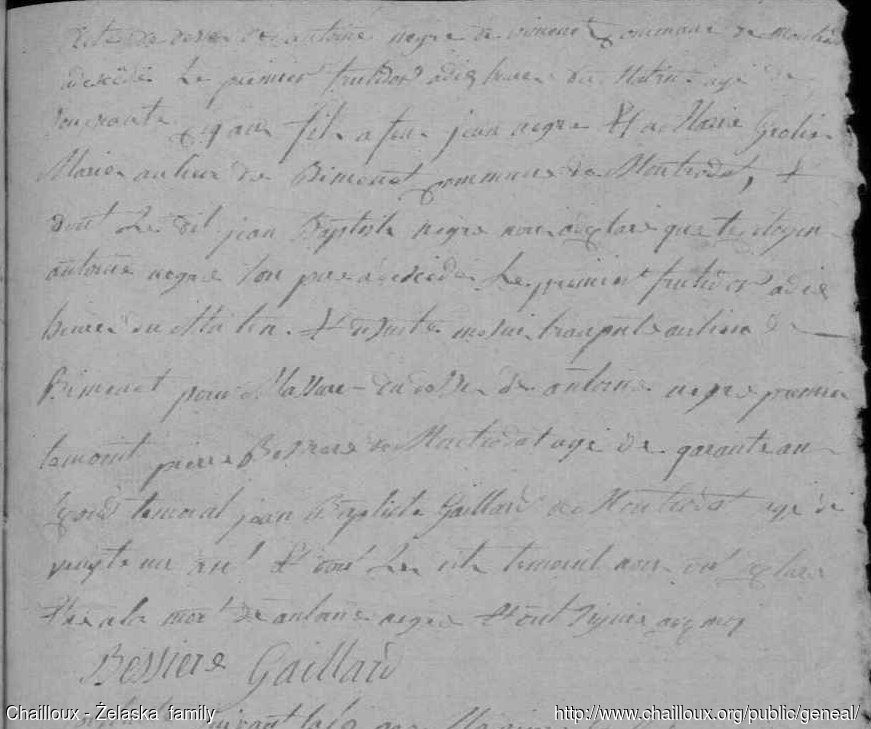 acte de deces de antoine negre de vimenet commune de
a decédé Le premier fructidor a dix heures du Matin agé de
ans fils a feu jean negre Et de Marie
Mariés au lieu de Bimenet commune de Montrodat, Et
dont Le dit jean Baptiste negre nous a declaré que le citoyen
antoine negre son pere a decédé Le premier fructidor a dix
heures du Matin. Et de suite me suis transporté au lieu de
Bimenet pour du deces de antoine negre premier
temoint pierre Bessiere de Montrodat agé de garante an
segond temoint jean Baptiste Gaillard de Montrodat agé de
vingt un ans Et dont Les dits temoint nous ont declaré
de la mort de antoine negre Et ont signié avec moi
Bessiere Gaillard
Chailloux - Żelaska family
http://www.chailloux.org/public/geneal/